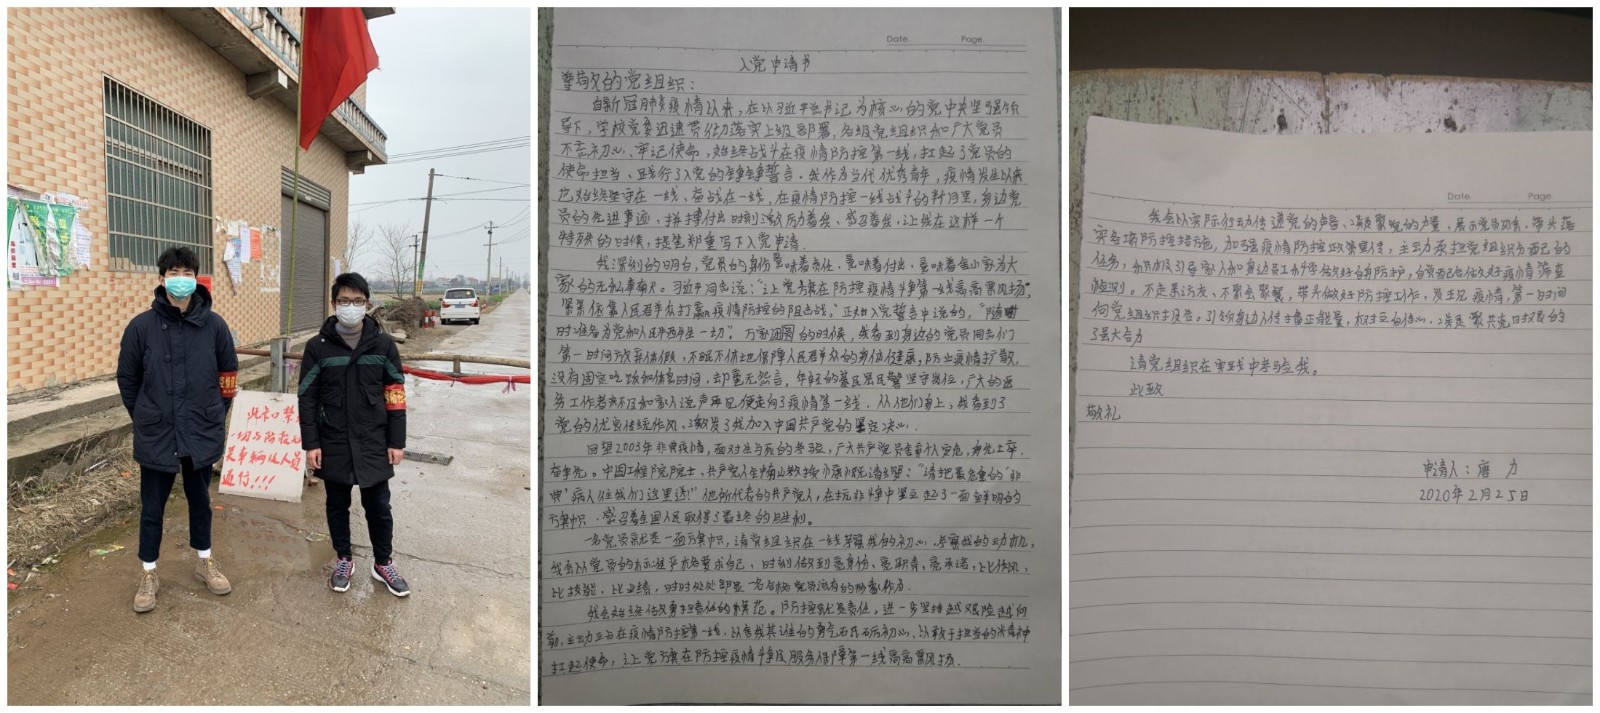 此卡口禁
一切与防疫无
关车辆及人员
通行!!!
Date.
Page.
入党申请书
尊敬的党组织：
自新冠肺炎疫情以来，在以习近平总书记为核心的党中央坚强领
导下，学校党委迅速贯彻落实上级部署，各级党组织和广大党员
不忘初心、牢记使命，始终战斗在疫情防控第一线，扛起了党员的
使命担当、践行了入党的铮铮誓言。我作为当代优秀青年，疫情发生以来
也始终坚守在一线、奋战在一线，在疫情防控一线战斗的日子里，身边党
员的先进事迹、拼搏付出时刻激励着我、感召着我，让我在这样一个
特殊的时候，提笔郑重写下入党申请。
我深刻的明白，党员的身份意味着责任、意味着付出、意味着舍小家为大
家的无私奉献。习近平同志说：“让党旗在防控疫情斗争第一线高高飘扬”，
紧紧依靠人民群众打赢疫情防控的阻击战。”正如入党誓言中说的，“随时
时准备为党和人民牺牲一切”。万家团圆的时候，我看到身边的党员同志们
第一时间放弃休假，不眠不休地保障人民群众的身体健康，防止疫情扩散，
没有固定吃饭和休息时间，却毫无怨言。年轻的基层民警坚守岗位，广大的医
务工作者来不及和家人说声再见便走向了疫情第一线。从他们身上，我看到了
党的优良传统作风、激发了我加入中国共产党的坚定决心。
回望2003年非典疫情，面对生与死的考验，广大共产党员舍身忘危，
奋争先。中国工程院院士、共产党人钟南山教授慷慨请缨：“请把最危重的‘非
典’病人往我们这里送！”他所代表的共产党人，在抗非斗争中竖立起了一面鲜明的
旗帜，感召着全国人民取得了最终的胜利。
一名党员就是一面旗帜，请党组织在一线考察我的初心、考察我的动机，
我会以党员的标准严格要求自己，时刻做到亮身份、亮职责、亮承诺，比作风、
比技能、比业绩，时时处处彰显一名合格党员该有的形象作为。
我会始终做勇担责任的模范。防控就是责任，进一步坚持越艰险越向
前，主动站在疫情防控第一线，以舍我其谁的勇气砥砺初心、以敢于担当的精神
扛起使命，让党旗在防控疫情斗争及服务保障第一线高高飘扬。
Date
Page
我会以实际行动传递党的声音、凝聚党的力量、展示党员风采，带头落
实各项防控措施，加强疫情防控政策宣传，主动承担党组织分配的
任务，积极引导家人和身边员工科学做好自身防护，自觉配合做好疫情筛查
检测。不走亲访友、不聚会聚餐，带头做好防控工作，发现疫情，第一时间
向党组织报告。引领身边人传播正能量，树立自信心，凝聚共克时艰的
强大合力
请党组织在实践中考验我。
此致
敬礼
申请人：唐 力
2020年2月25日